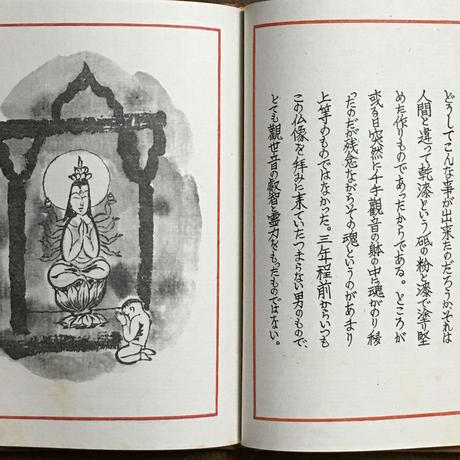 どうしてこんな事が出来たのだろうかそれは
人間と違って乾漆という砥の粉と漆で塗り堅
めた作りものであったからである。ところが
或る日突然に千手觀音の躰の中に魂がのり移
ったのだが残念ながらその魂というのがあまり
上等のものではなかった。三年程前からいつも
この仏像を拝みに来ていたつまらない男のもので、
とても觀世音の叡智と霊力をもったものではない。